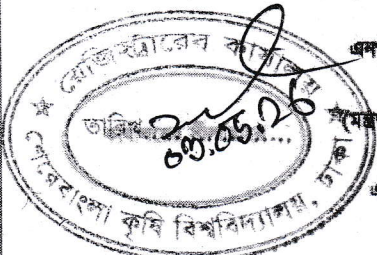 রেজিস্ট্রারের কার্যালয়
তারিখ..................
০৩.05.26
শেরেবাংলা কৃষি বিশ্ববিদ্যালয়, ঢাকা